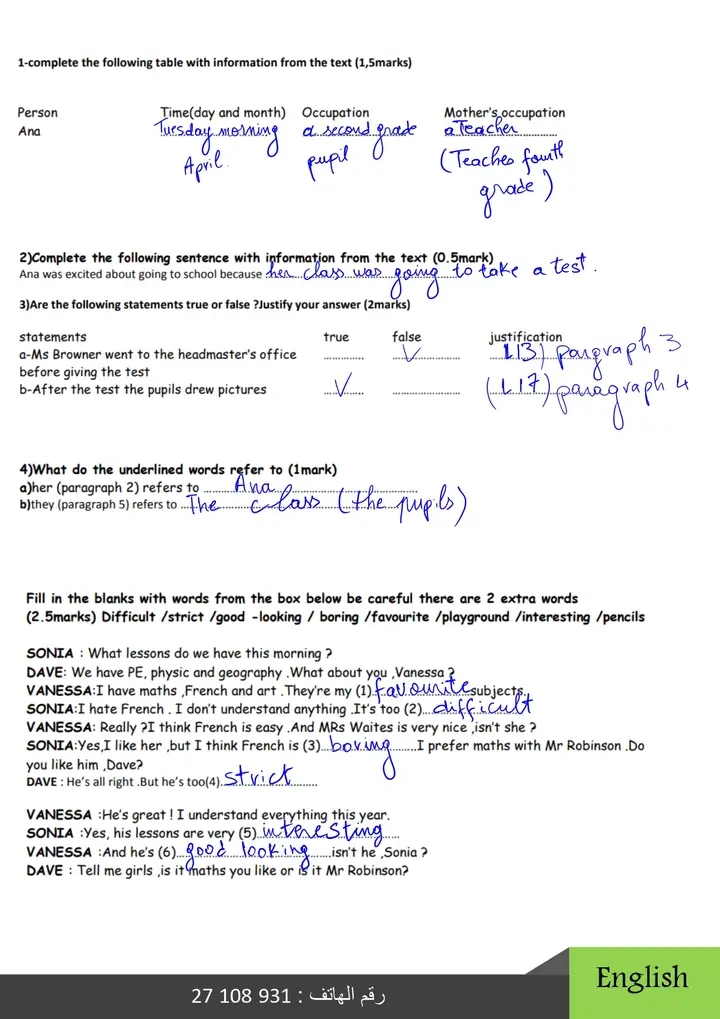 1-complete the following table with information from the text (1,5marks)
Person Time(day and month) Occupation Mother's occupation
Ana Tuesday morning a second grade a Teacher
April. pupil (Teaches fourth
grade)
2)Complete the following sentence with information from the text (0.5mark)
Ana was excited about going to school because her class was going to take a test.
3)Are the following statements true or false ?Justify your answer (2marks)
statements true false justification
a-Ms Browner went to the headmaster's office ............. ...✓............... L13) paragraph 3
before giving the test
b-After the test the pupils drew pictures ....✓...... ....................... (L17) paragraph 4
4)What do the underlined words refer to (1mark)
a)her (paragraph 2) refers to ........Ana..........................................
b)they (paragraph 5) refers to ...The class (the pupils)
Fill in the blanks with words from the box below be careful there are 2 extra words
(2.5marks) Difficult /strict /good -looking / boring /favourite /playground /interesting /pencils
SONIA : What lessons do we have this morning ?
DAVE: We have PE, physic and geography .What about you ,Vanessa ?
VANESSA:I have maths ,French and art .They're my (1) favourite subjects.
SONIA:I hate French . I don't understand anything .It's too (2)...difficult
VANESSA: Really ?I think French is easy .And MRs Waites is very nice ,isn't she ?
SONIA:Yes,I like her ,but I think French is (3)...boring........I prefer maths with Mr Robinson .Do
you like him ,Dave?
DAVE : He's all right .But he's too(4).strict..........
VANESSA :He's great ! I understand everything this year.
SONIA :Yes, his lessons are very (5).interesting....
VANESSA :And he's (6)...good looking.......isn't he ,Sonia ?
DAVE : Tell me girls ,is it maths you like or is it Mr Robinson?
English
رقم الهاتف : 931 108 27